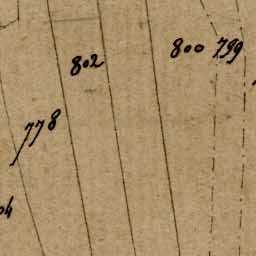 802
800 799
778
04